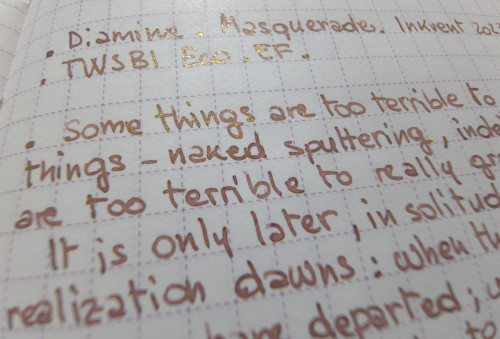 • Diamine. Masquerade. Inkvent
• TWSBI Eco. EF.
• Some things are too terrible to
things - naked sputtering,
are too terrible to really
It is only later, in
realization dawns: when
have departed;
to